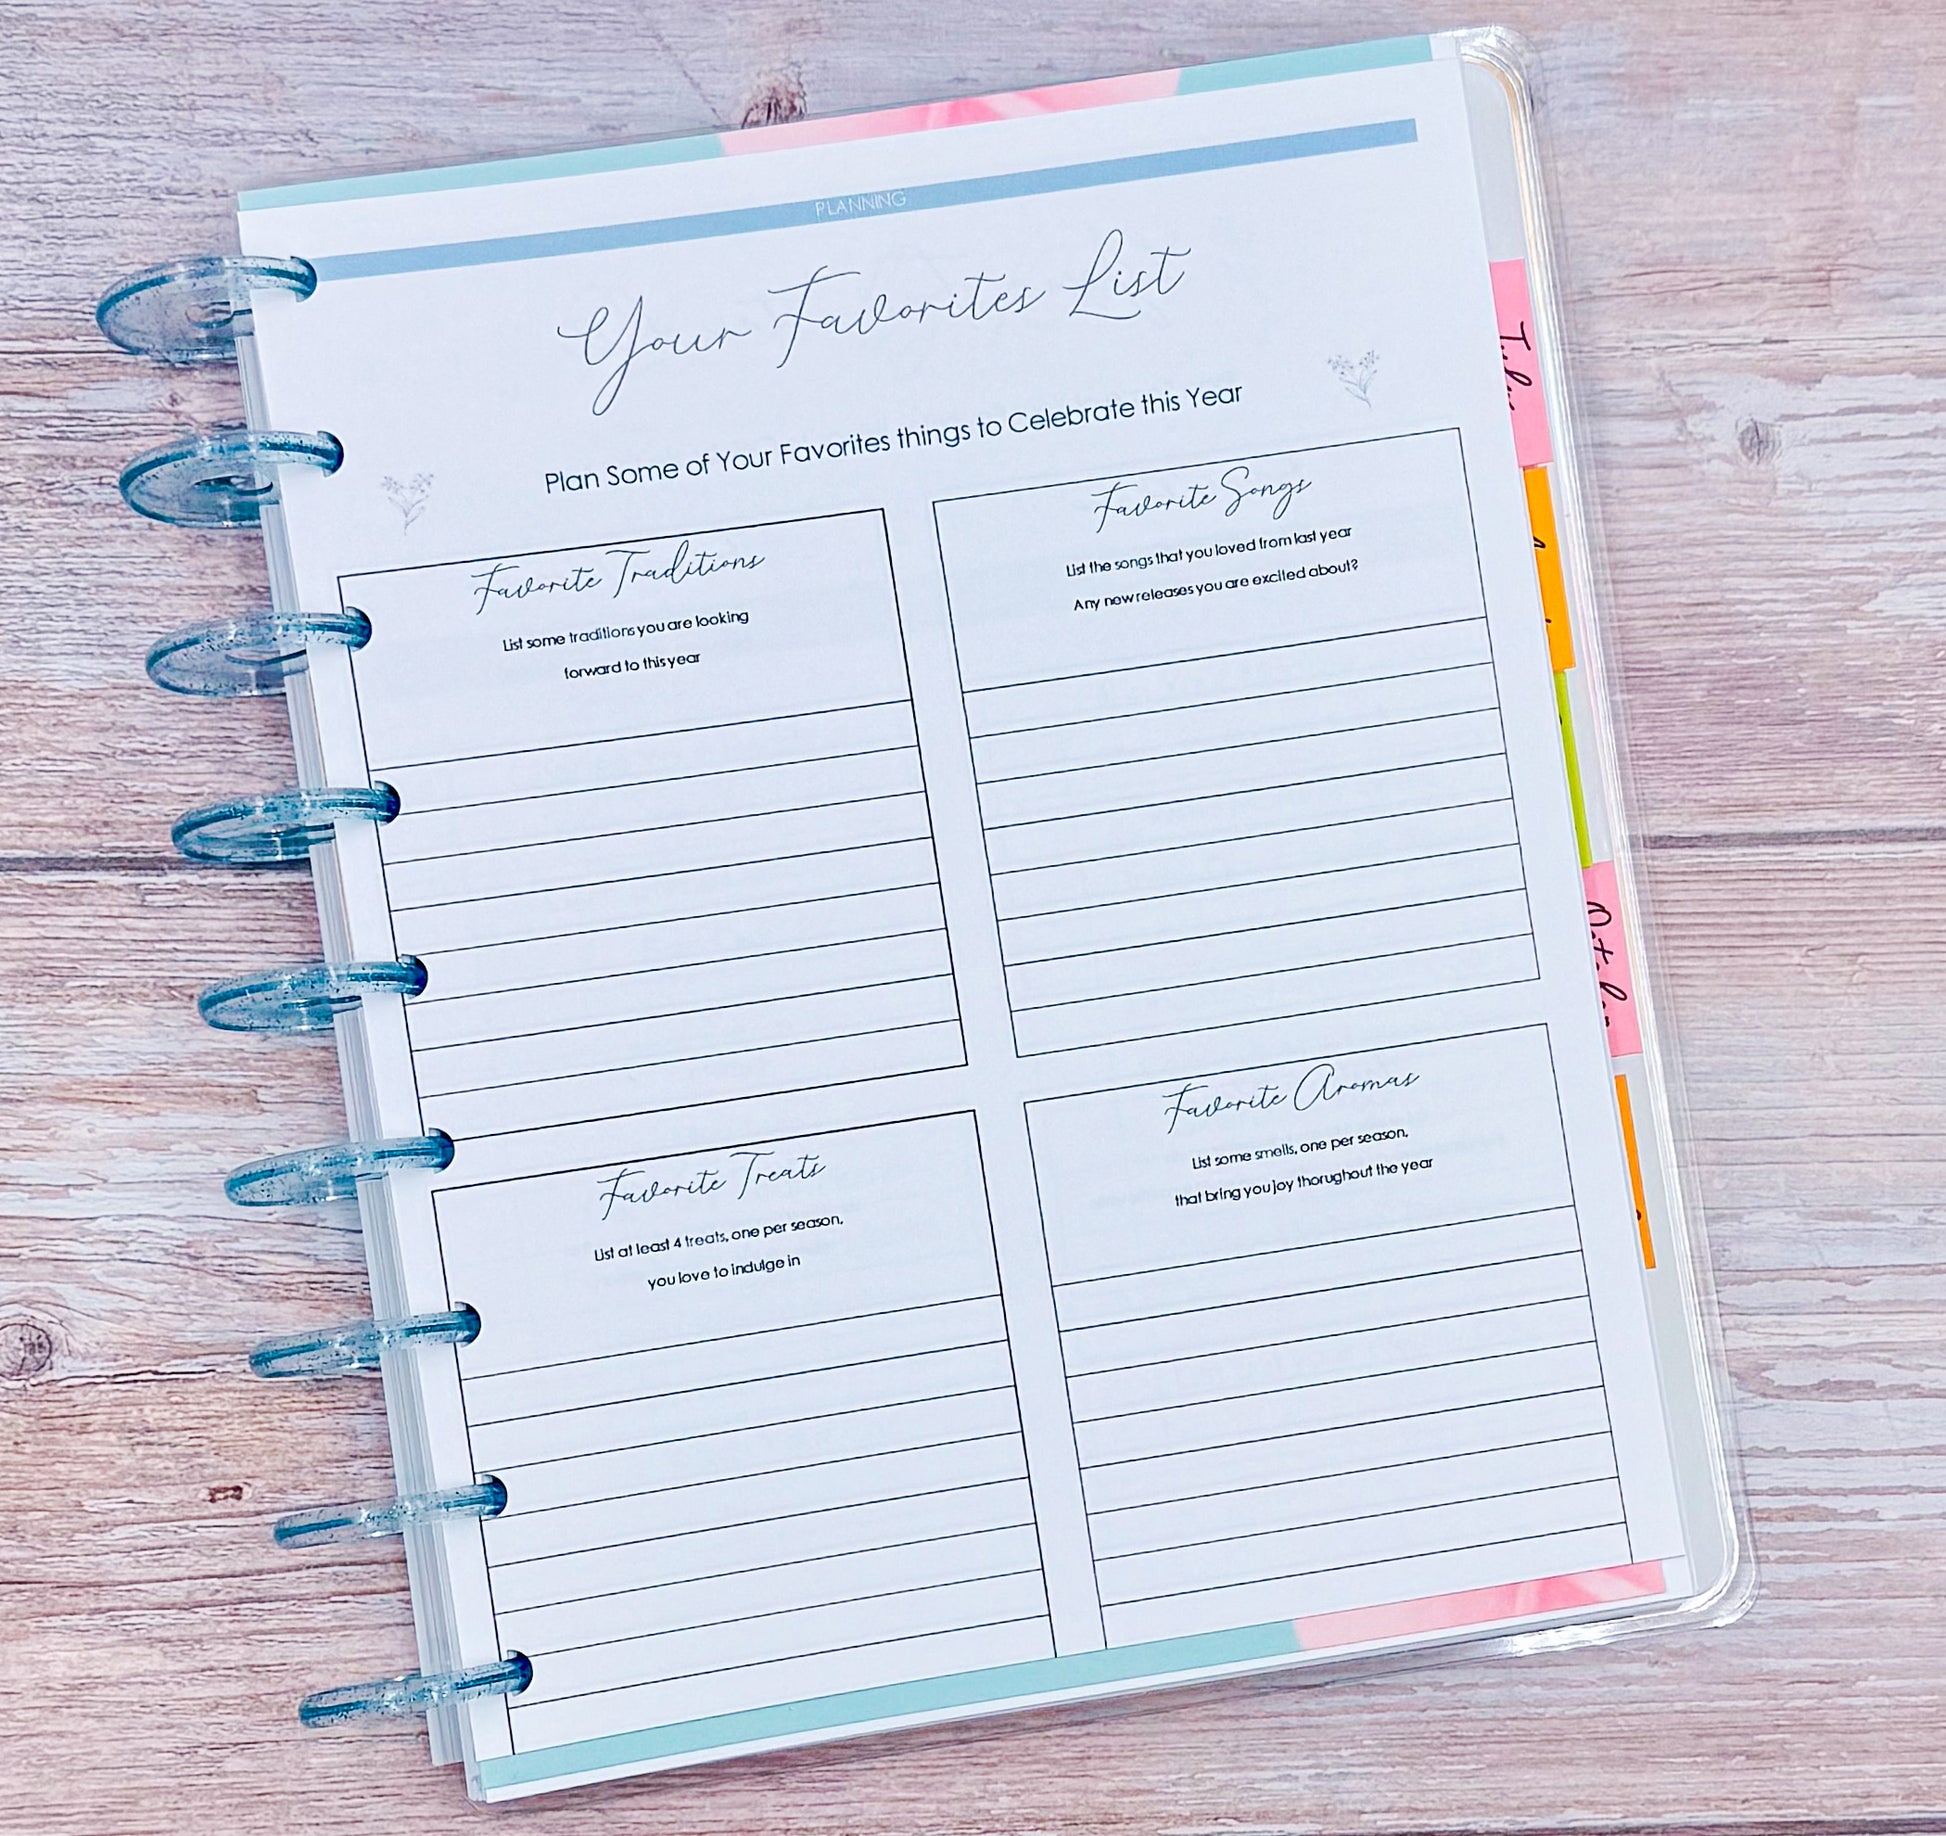 PLANNING
Your Favorites List
Plan Some of Your Favorites things to Celebrate this Year
Favorite Traditions
List some traditions you are looking
forward to this year
Favorite Songs
List the songs that you loved from last year
Any new releases you are excited about?
Favorite Treats
List at least 4 treats, one per season,
you love to indulge in
Favorite Aromas
List some smells, one per season,
that bring you joy thorughout the year
July
October